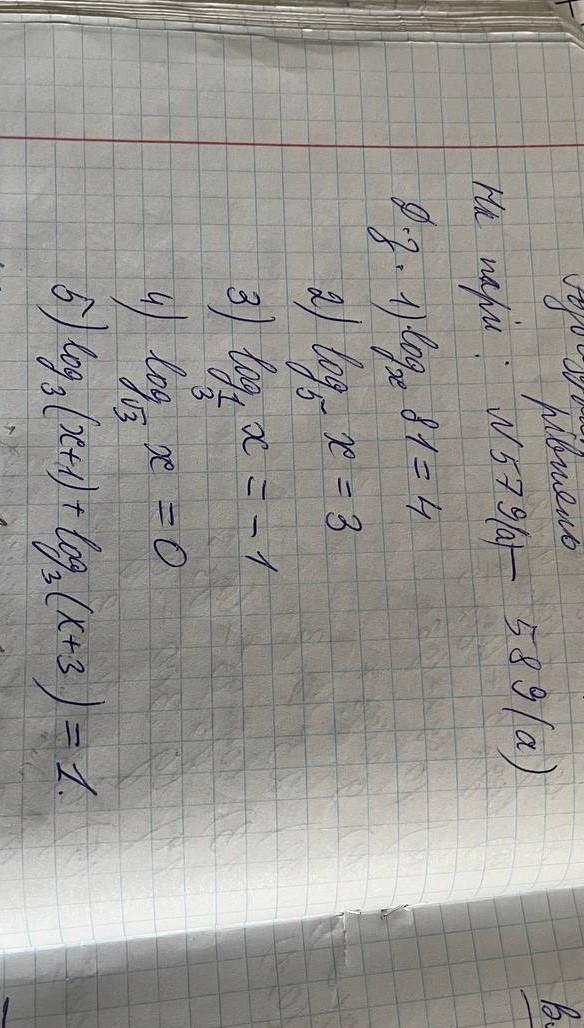 рівнень
На парі: N 579(а) — 589(а)
Д.з. 1) log_x 81 = 4
2) log_5 x = 3
3) log_{1/3} x = -1
4) log_{√3} x = 0
5) log_3(x+1) + log_3(x+3) = 1.